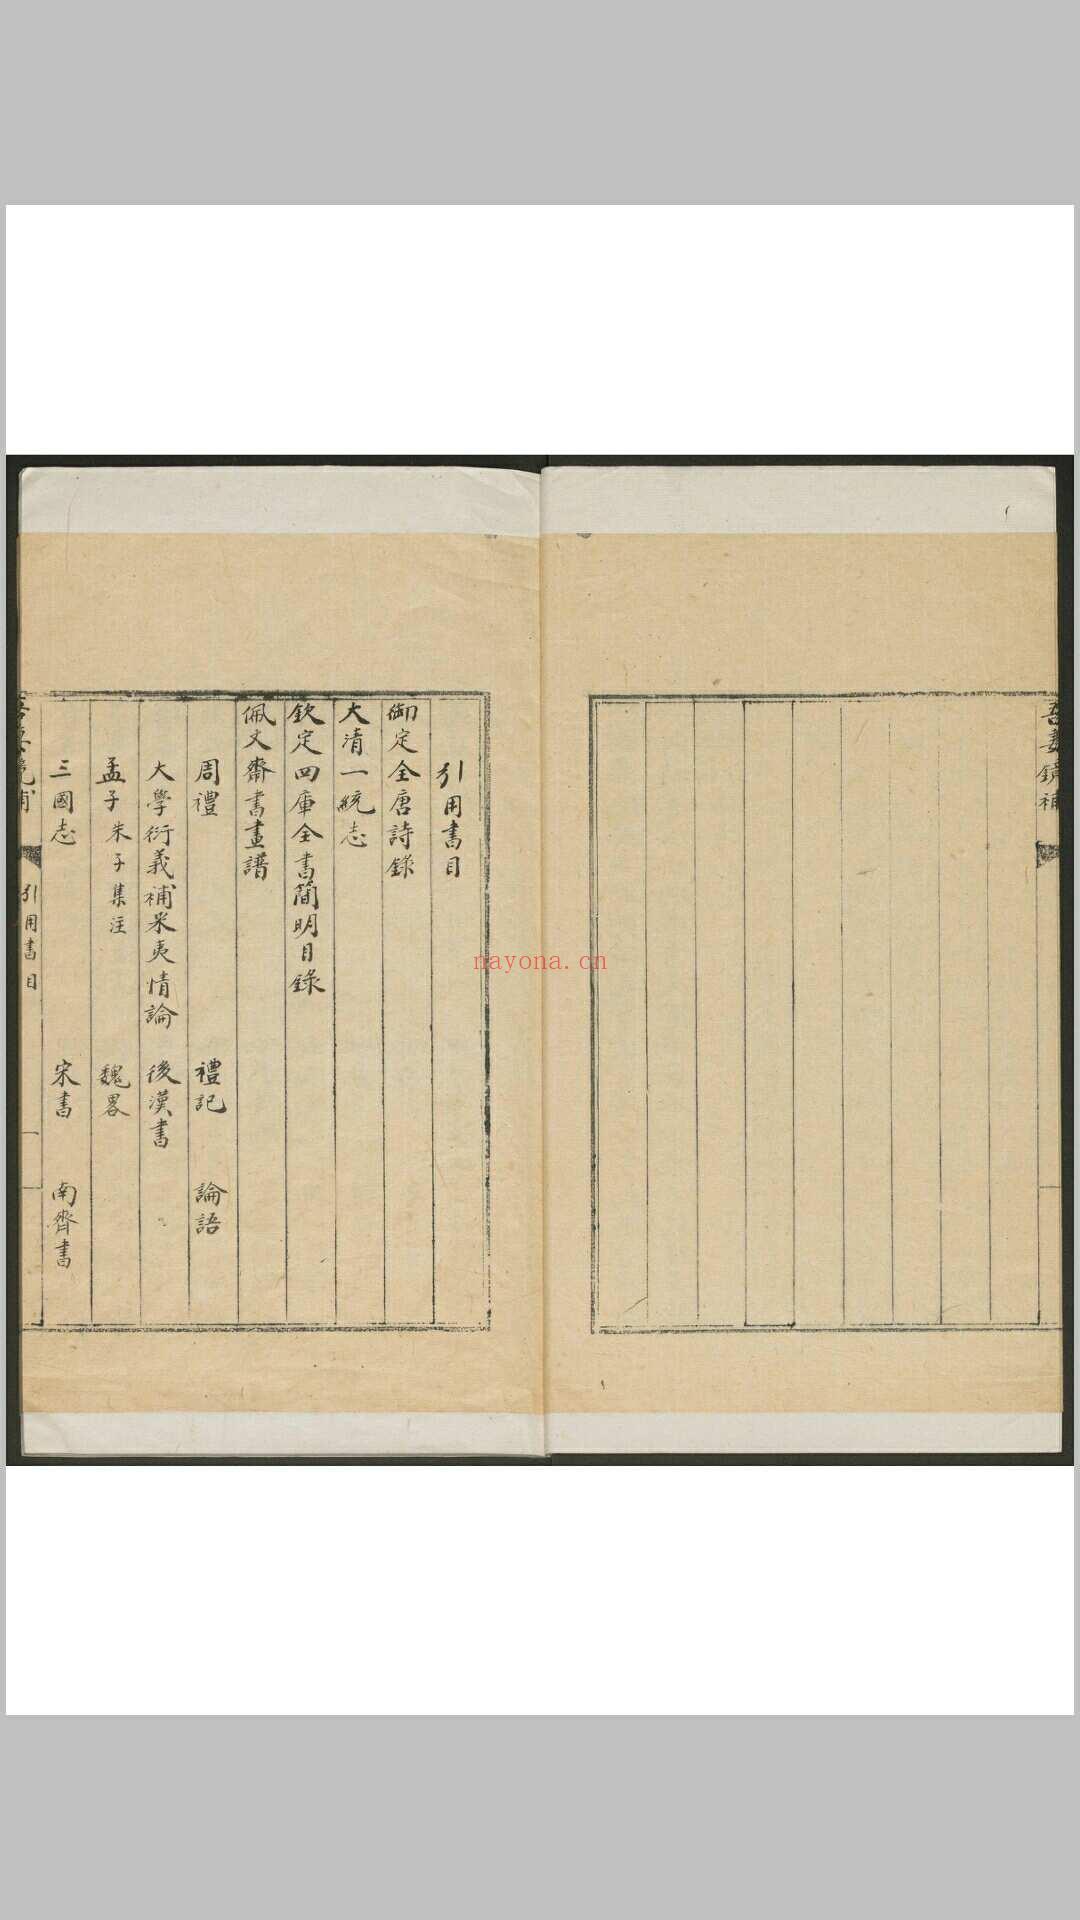 吾妻鏡補
引用書目
御定全唐詩錄
大清一統志
欽定四庫全書簡明目錄
佩文齋書畫譜
周禮 禮記 論語
大學衍義補米夷情論 後漢書
孟子朱子集注 魏畧
三國志 宋書 南齊書
吾妻鏡補 引用書目 一
nayona.cn